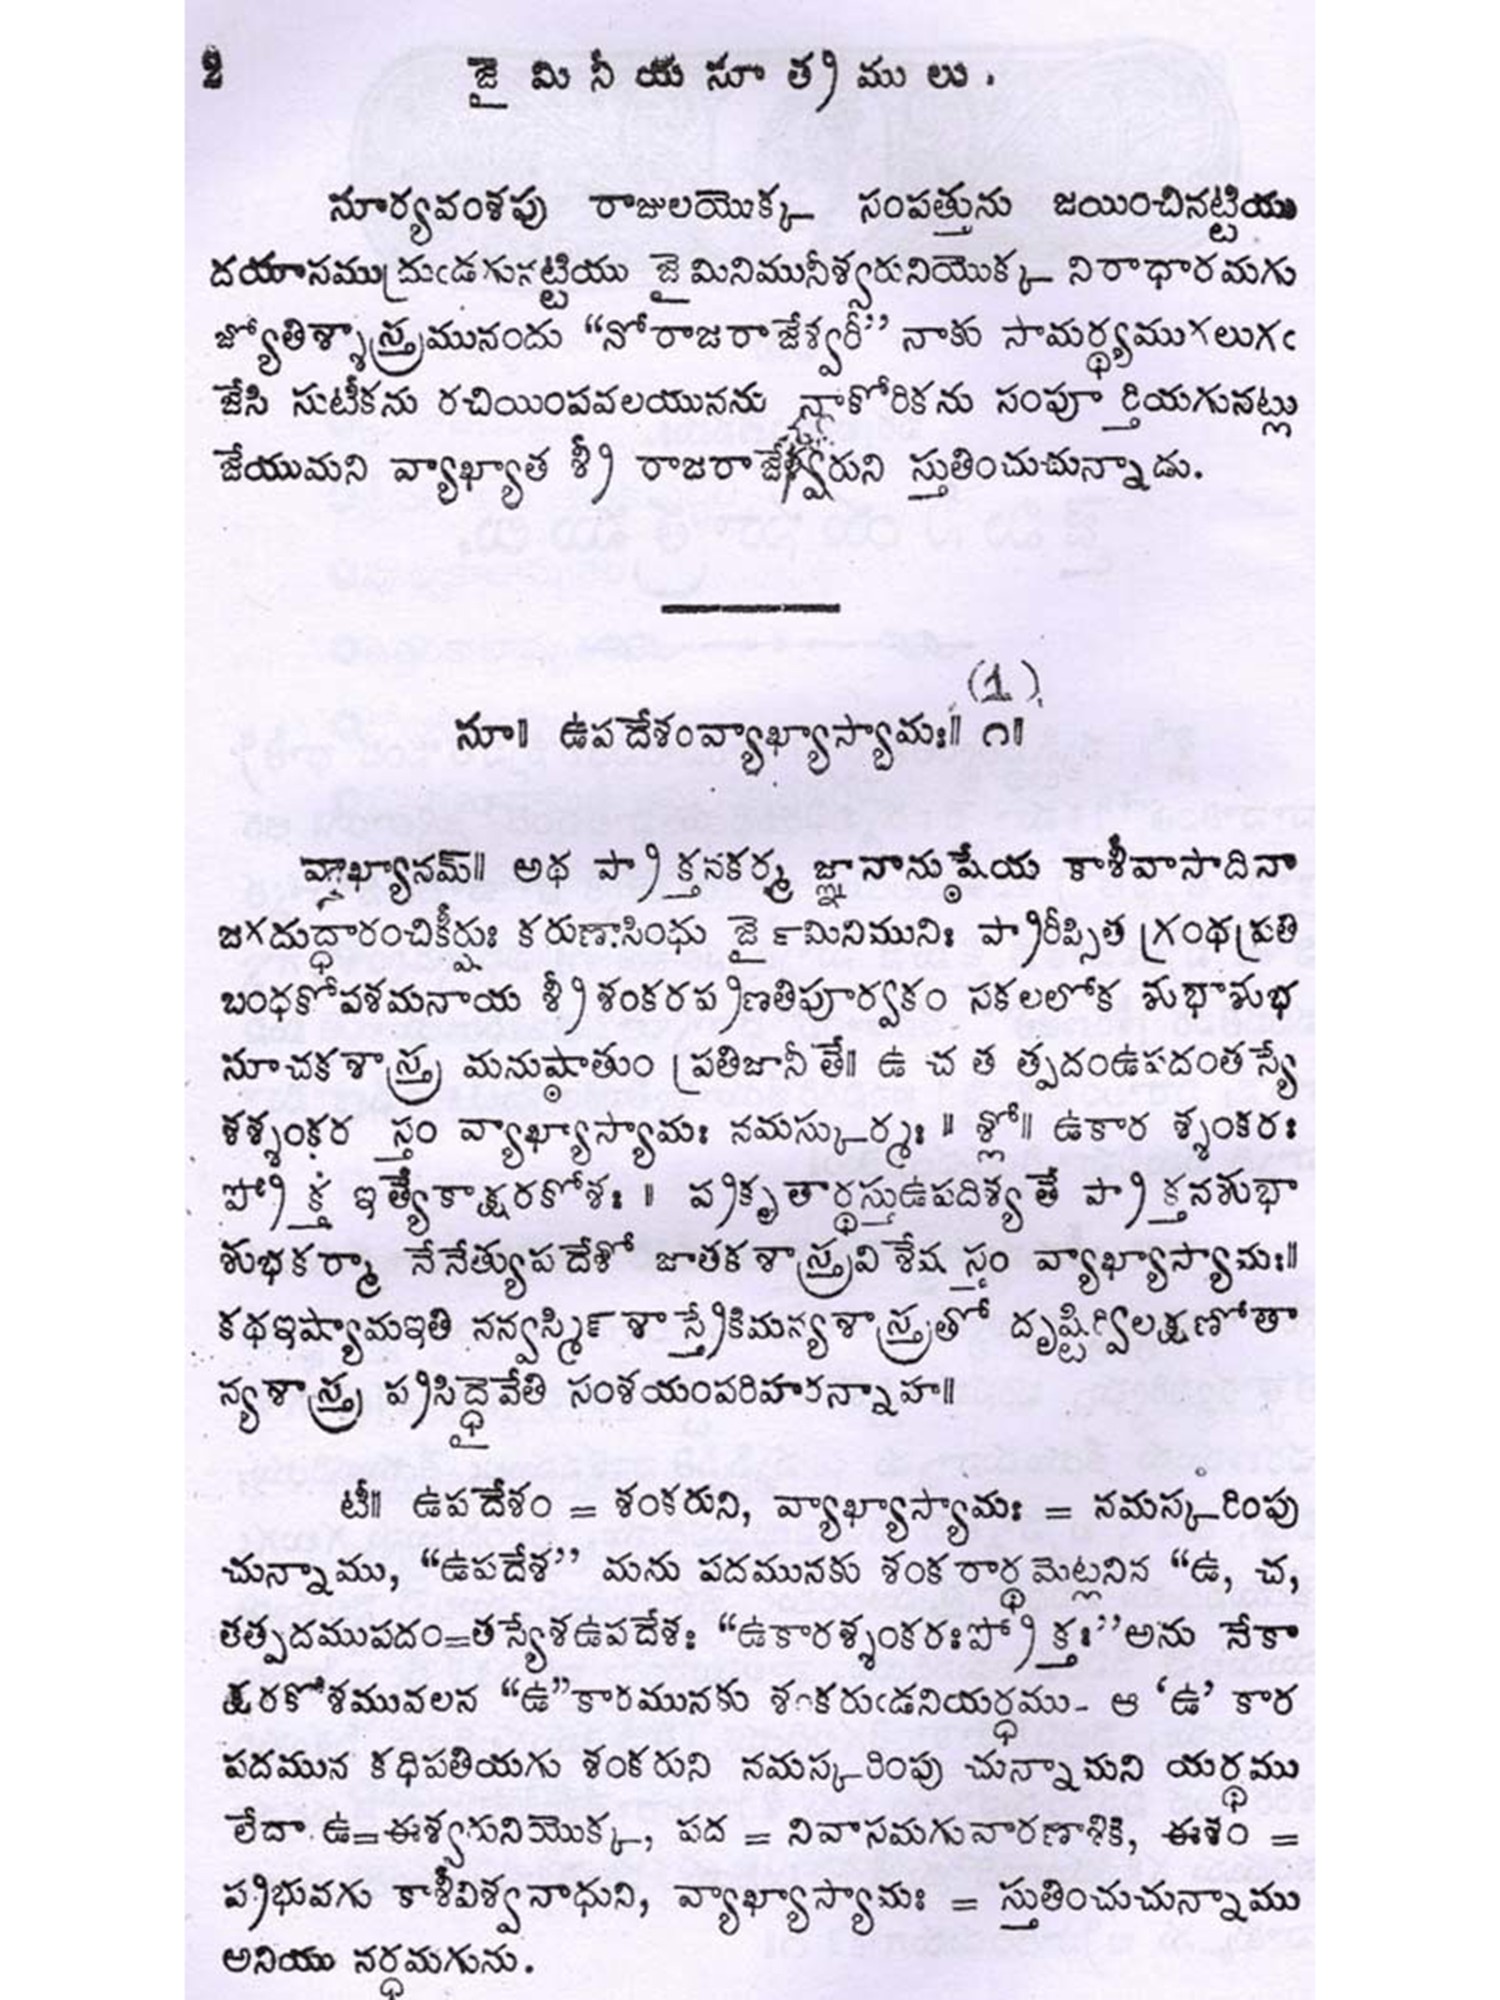 2 జైమినీయసూత్రములు.
సూర్యవంశపు రాజులయొక్క సంపత్తును జయించినట్టియు
దయాసముద్రుఁడగునట్టియు జైమినిమునీశ్వరునియొక్క నిరాధారమగు
జ్యోతిశ్శాస్త్రమునందు “నోరాజరాజేశ్వరీ” నాకు సామర్థ్యముగలుగఁ
జేసి సుటీకను రచియింపవలయునను నాకోరికను సంపూర్తియగునట్లు
జేయుమని వ్యాఖ్యాత శ్రీ రాజరాజేశ్వరుని స్తుతించుచున్నాడు.
సూ॥ ఉపదేశంవ్యాఖ్యాస్యామః॥ ౧॥ (1)
వ్యాఖ్యానమ్॥ అథ ప్రాక్తనకర్మ జ్ఞానానుష్ఠేయ కాశీవాసాదినా
జగదుద్ధారంచికీర్షుః కరుణాసింధు జైమినిమునిః ప్రారీప్సిత గ్రంథప్రతి
బంధకోపశమనాయ శ్రీశంకరప్రణతిపూర్వకం సకలలోక శుభాశుభ
సూచకశాస్త్ర మనుష్ఠాతుం ప్రతిజానీతే॥ ఉ చ త త్పదంఉపదంతస్యే
శశ్శంకర స్తం వ్యాఖ్యాస్యామః నమస్కుర్మః ॥ శ్లో॥ ఉకార శ్శంకరః
ప్రోక్త ఇత్యేకాక్షరకోశః । ప్రకృతార్థస్తుఉపదిశ్యతే ప్రాక్తనశుభా
శుభకర్మా నేనేత్యుపదేశో జాతకశాస్త్రవిశేష స్తం వ్యాఖ్యాస్యామః॥
కథఇష్యామఇతి నన్వస్మిన్‌శాస్త్రేకిమన్యశాస్త్రతో దృష్టిర్విలక్షణోతా
న్యశాస్త్ర ప్రసిద్ధైవేతి సంశయంపరిహరన్నాహ॥
టీ॥ ఉపదేశం = శంకరుని, వ్యాఖ్యాస్యామః = నమస్కరింపు
చున్నాము, “ఉపదేశ” మను పదమునకు శంకరార్థమెట్లనిన “ఉ, చ,
తత్పదముపదం=తస్యేశఉపదేశః “ఉకారశ్శంకరఃప్రోక్తః”అను నేకా
క్షరకోశమువలన “ఉ”కారమునకు శంకరుఁడనియర్ధము- ఆ ‘ఉ’ కార
పదమున కధిపతియగు శంకరుని నమస్కరింపు చున్నామని యర్థము
లేదా ఉ=ఈశ్వరునియొక్క, పద = నివాసమగువారణాశికి, ఈశం =
ప్రభువగు కాశీవిశ్వనాధుని, వ్యాఖ్యాస్యామః = స్తుతించుచున్నాము
అనియు నర్ధమగును.